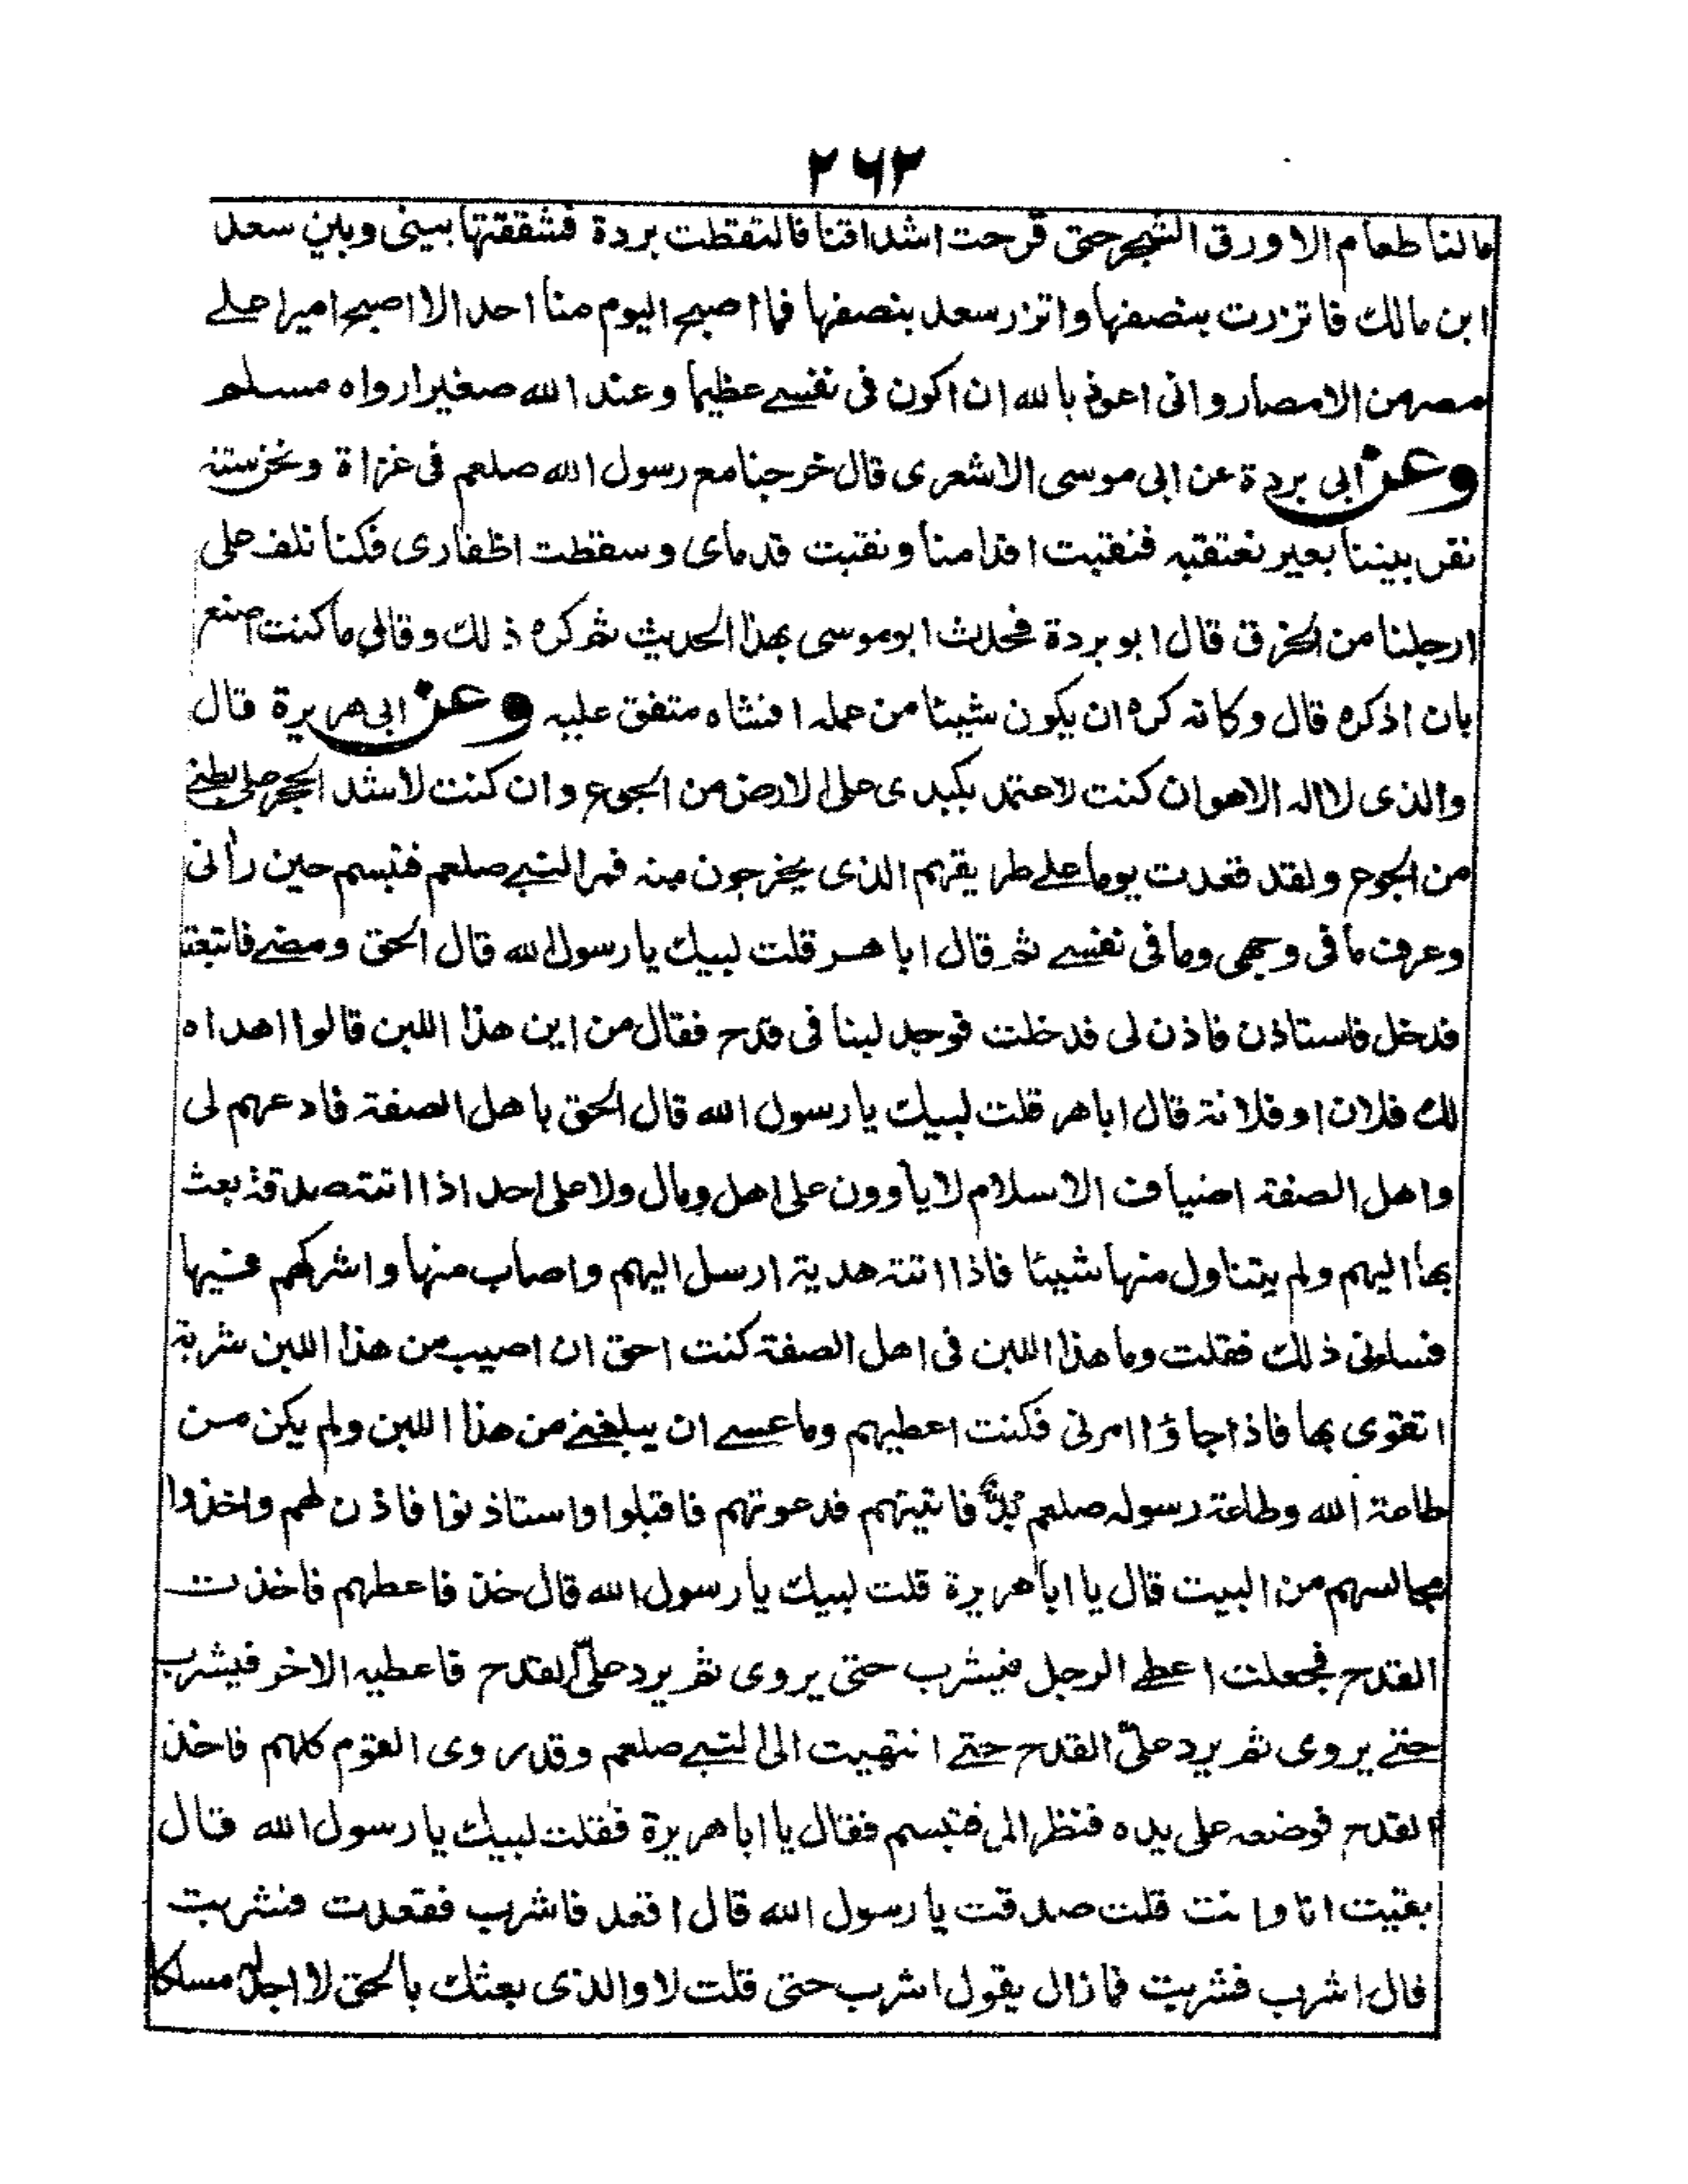 ۲۶۳
مالنا طعام الا ورق الشجر حتى قرحت اشداقنا فالتقطت بردة فشققتها بينى وبين سعد
ابن مالك فاتزرت بنصفها واتزر سعد بنصفها فما اصبح اليوم منا احد الا اصبح اميرا على
مصر من الامصار وانى اعوذ بالله ان اكون فى نفسے عظيما وعند الله صغيرا رواه مسلم
وعن ابى بردة عن ابى موسى الاشعرى قال خرجنا مع رسول الله صلعم فى غزاة ونحن ستة
نفر بيننا بعير نعتقبه فنقبت اقدامنا ونقبت قدماى وسقطت اظفارى فكنا نلف على
ارجلنا من الخرق قال ابو بردة فحدث ابو موسى بهذا الحديث ثم كره ذلك وقال ما كنت اصنع
بان اذكره قال وكانه كره ان يكون شيئا من عمله افشاه متفق عليه وعن ابى هريرة قال
والذى لا اله الا هو ان كنت لاعتمد بكبدى على الارض من الجوع وان كنت لاشد الحجر على بطنے
من الجوع ولقد قعدت يوما علے طريقهم الذى يخرجون منه فمر النبے صلعم فتبسم حين رأنى
وعرف ما فى وجهى وما فى نفسے ثم قال ابا هر قلت لبيك يا رسول الله قال الحق ومضے فاتبعته
فدخل فاستاذن فاذن لى فدخلت فوجد لبنا فى قدح فقال من اين هذا اللبن قالوا اهداه
لك فلان او فلانة قال ابا هر قلت لبيك يا رسول الله قال الحق باهل الصفة فادعهم لى
واهل الصفة اضياف الاسلام لا يأوون على اهل ومال ولا على احد اذا اتته صدقة بعث
بها اليهم ولم يتناول منها شيئا فاذا اتته هدية ارسل اليهم واصاب منها واشركهم فيها
فساونى ذلك فقلت وما هذا اللبن فى اهل الصفة كنت احق ان اصيب من هذا اللبن شربة
اتقوى بها فاذا جاؤا امرنى فكنت اعطيهم وما عسے ان يبلغنے من هذا اللبن ولم يكن من
طاعة الله وطاعة رسوله صلعم بدٌّ فاتيتهم فدعوتهم فاقبلوا واستاذنوا فاذن لهم واخذوا
مجالسهم من البيت قال يا ابا هريرة قلت لبيك يا رسول الله قال خذ فاعطهم فاخذت
القدح فجعلت اعطے الرجل فيشرب حتى يروى ثم يرد علىّ القدح فاعطيه الاخر فيشرب
حتے يروى ثم يرد علىّ القدح حتے انتهيت الى النبے صلعم وقد روى القوم كلهم فاخذ
القدح فوضعه على يده فنظر الى فتبسم فقال يا ابا هريرة فقلت لبيك يا رسول الله قال
بقيت انا وانت قلت صدقت يا رسول الله قال اقعد فاشرب فقعدت فشربت
قال اشرب فشربت فما زال يقول اشرب حتى قلت لا والذى بعثك بالحق لا اجد له مسلكا